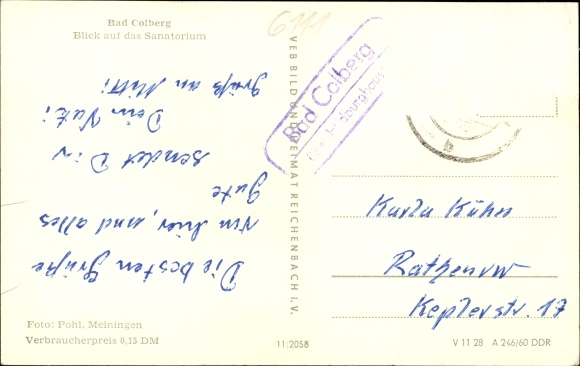 Bad Colberg
Blick auf das Sanatorium
6111
Die besten Grüße
von hier, und alles
Gute
sendet Dir
Dein Vati
Grüß an Mutti
Foto: Pohl, Meiningen
Verbraucherpreis 0,15 DM
VEB BILD UND HEIMAT REICHENBACH I. V.
11/2058
Bad Colberg
Hildburghausen
Karla Kühn
Rathenow
Keplerstr. 17
V 11 28 A 246/60 DDR